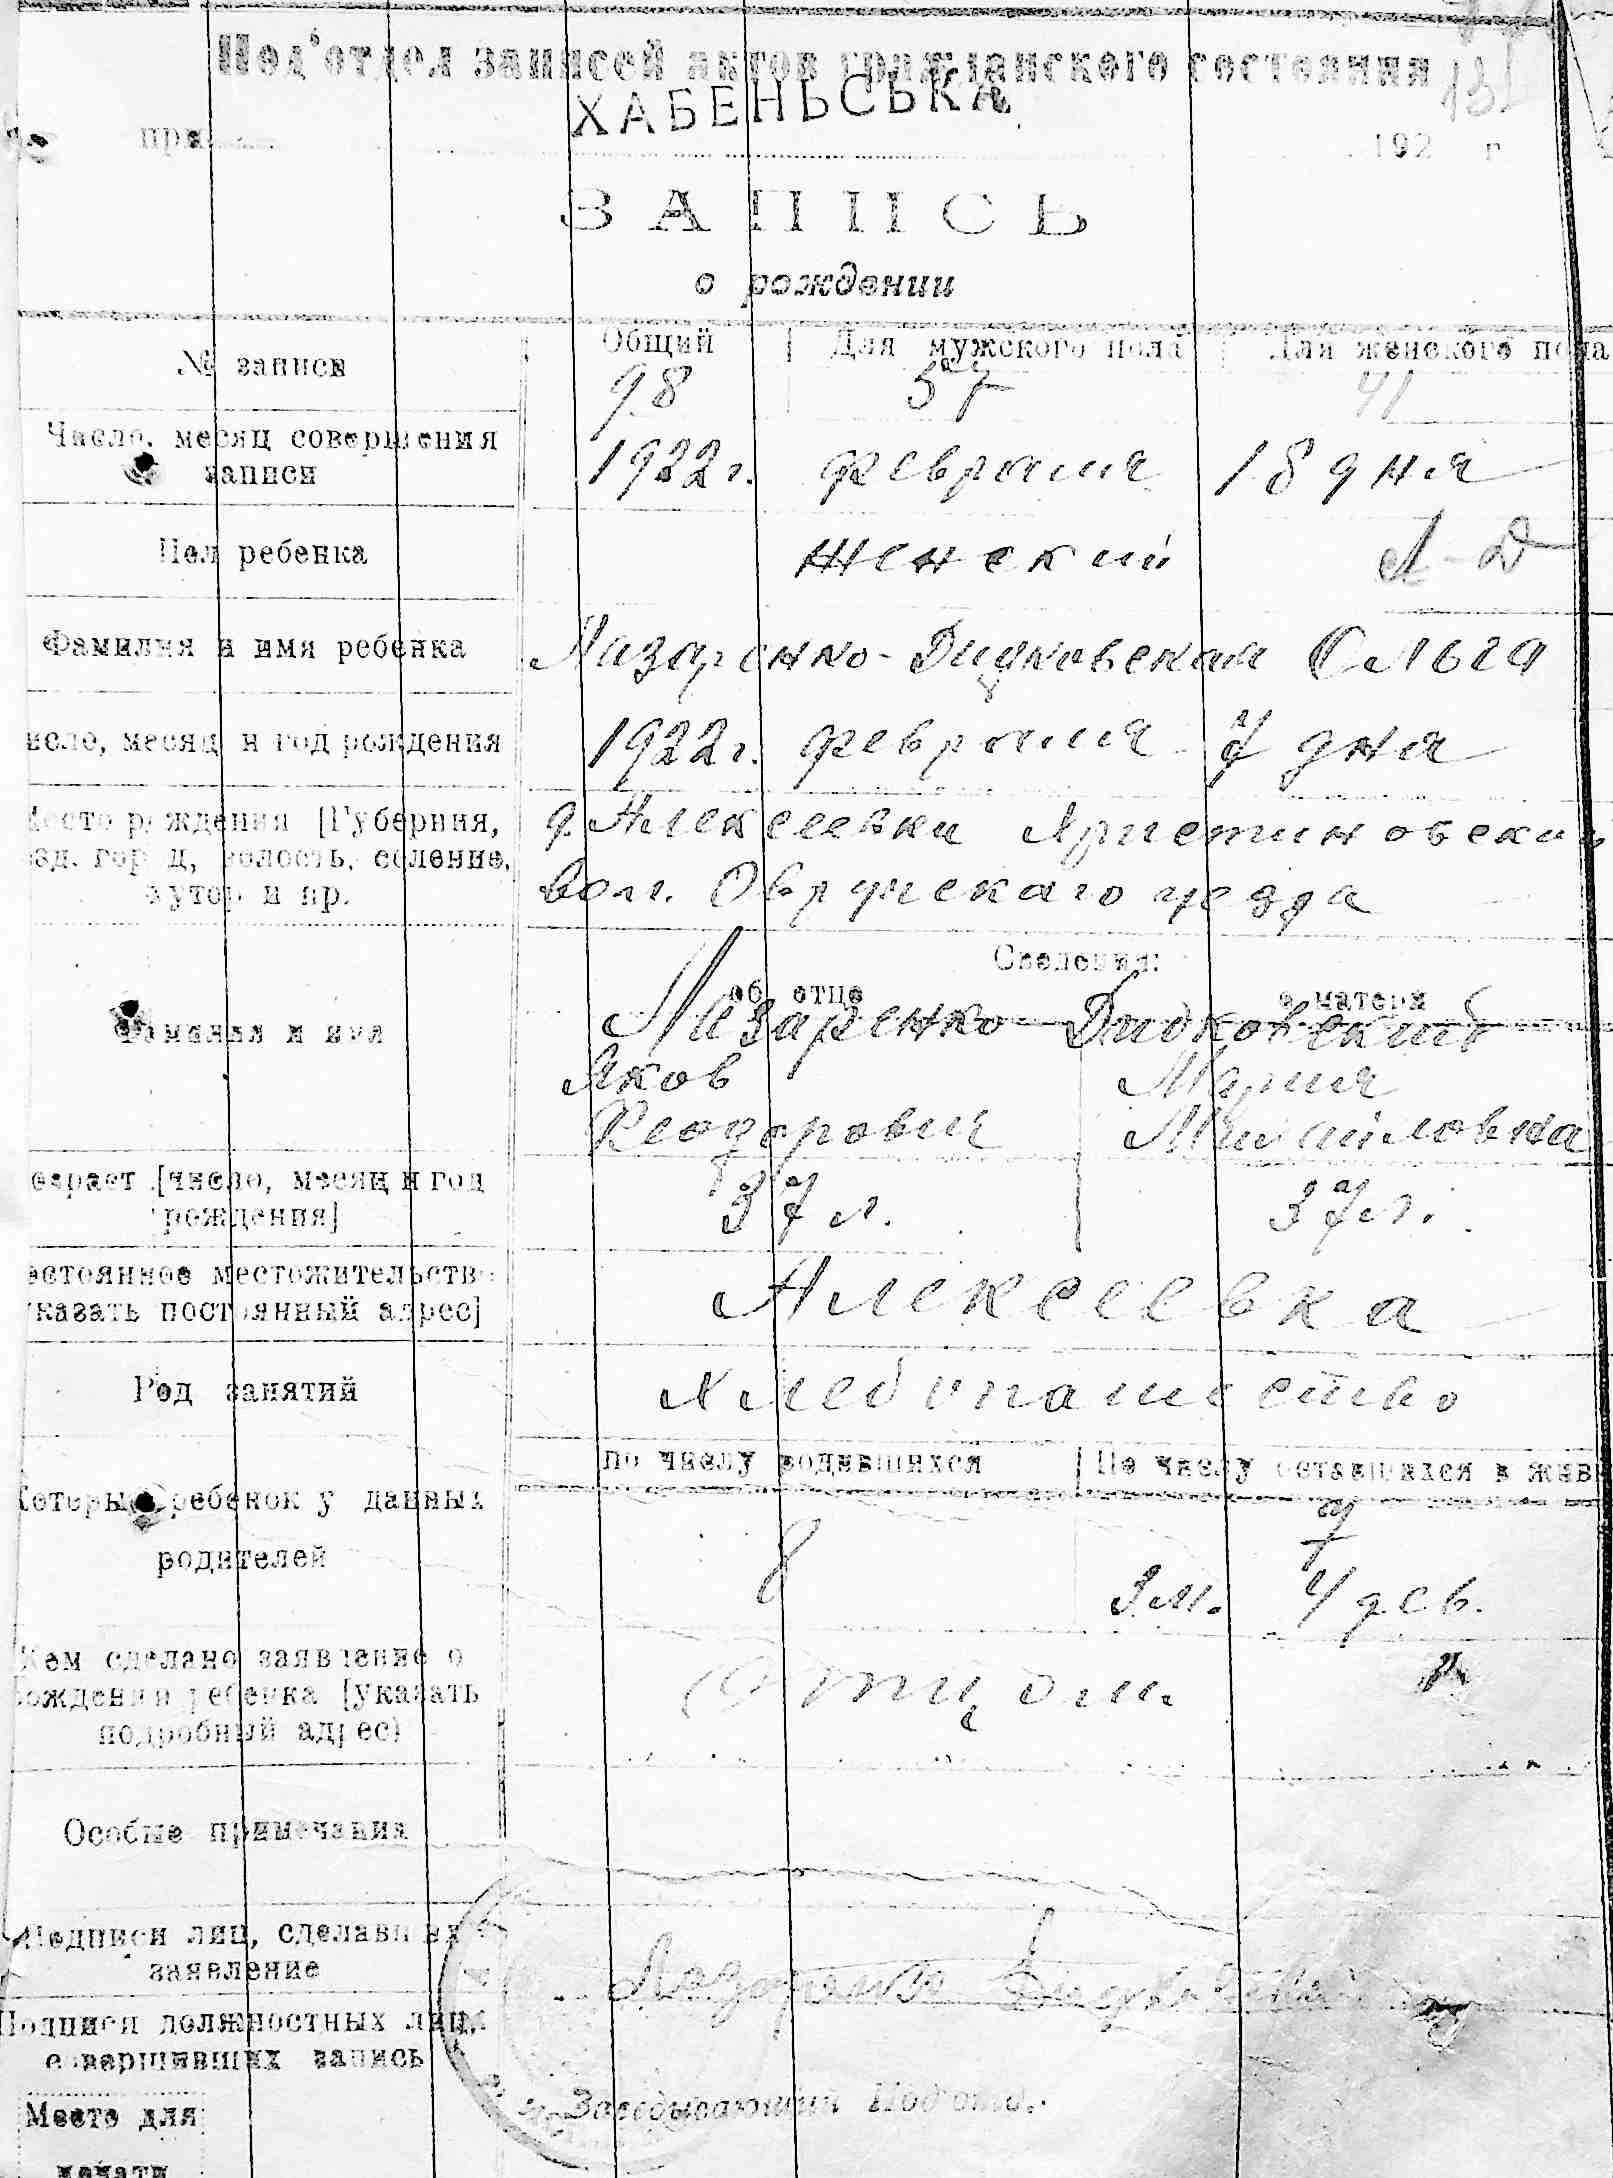 Под'отдел записей актов гражданского состояния
131
ХАБЕНЬСЬКА
при 192 г
ЗАПИСЬ
о рождении
№ записи
Общий Для мужского пола Для женского пола
98 57 41
Число, месяц совершения
записи
1922 г. февраля 18 дня
Пол ребенка
женский
Л-Д
Фамилия и имя ребенка
Лазаренко-Дидковская Ольга
исло, месяц и год рождения
1922 г. февраля 7 дня
Место рождения [Губерния,
езд. город, волость, селение,
хутор и пр.
д. Алексеевки Христиновской
вол. Овручскаго уезда
Сведения:
об отце о матери
Фамилия и имя
Лазаренко-Дидковский
Яков Мария
Феодорович Михайловна
озраст [число, месяц и год
рождения]
37 л. 37 л.
остоянное местожительство
указать постоянный адрес]
Алексеевка
Род занятий
Хлебопашество
По числу родившихся По числу оставшихся в жив
Который ребенок у данных
родителей
8 7
3 м. 4 дев.
Кем сделано заявление о
рождении ребенка [указать
подробный адрес)
Отцом.
Особые примечания
Подписи лиц, сделавших
заявление
Лазаренко Дидковский
Подписи должностных лиц,
совершивших запись
Заведывающий Под'отд.
Место для
печати